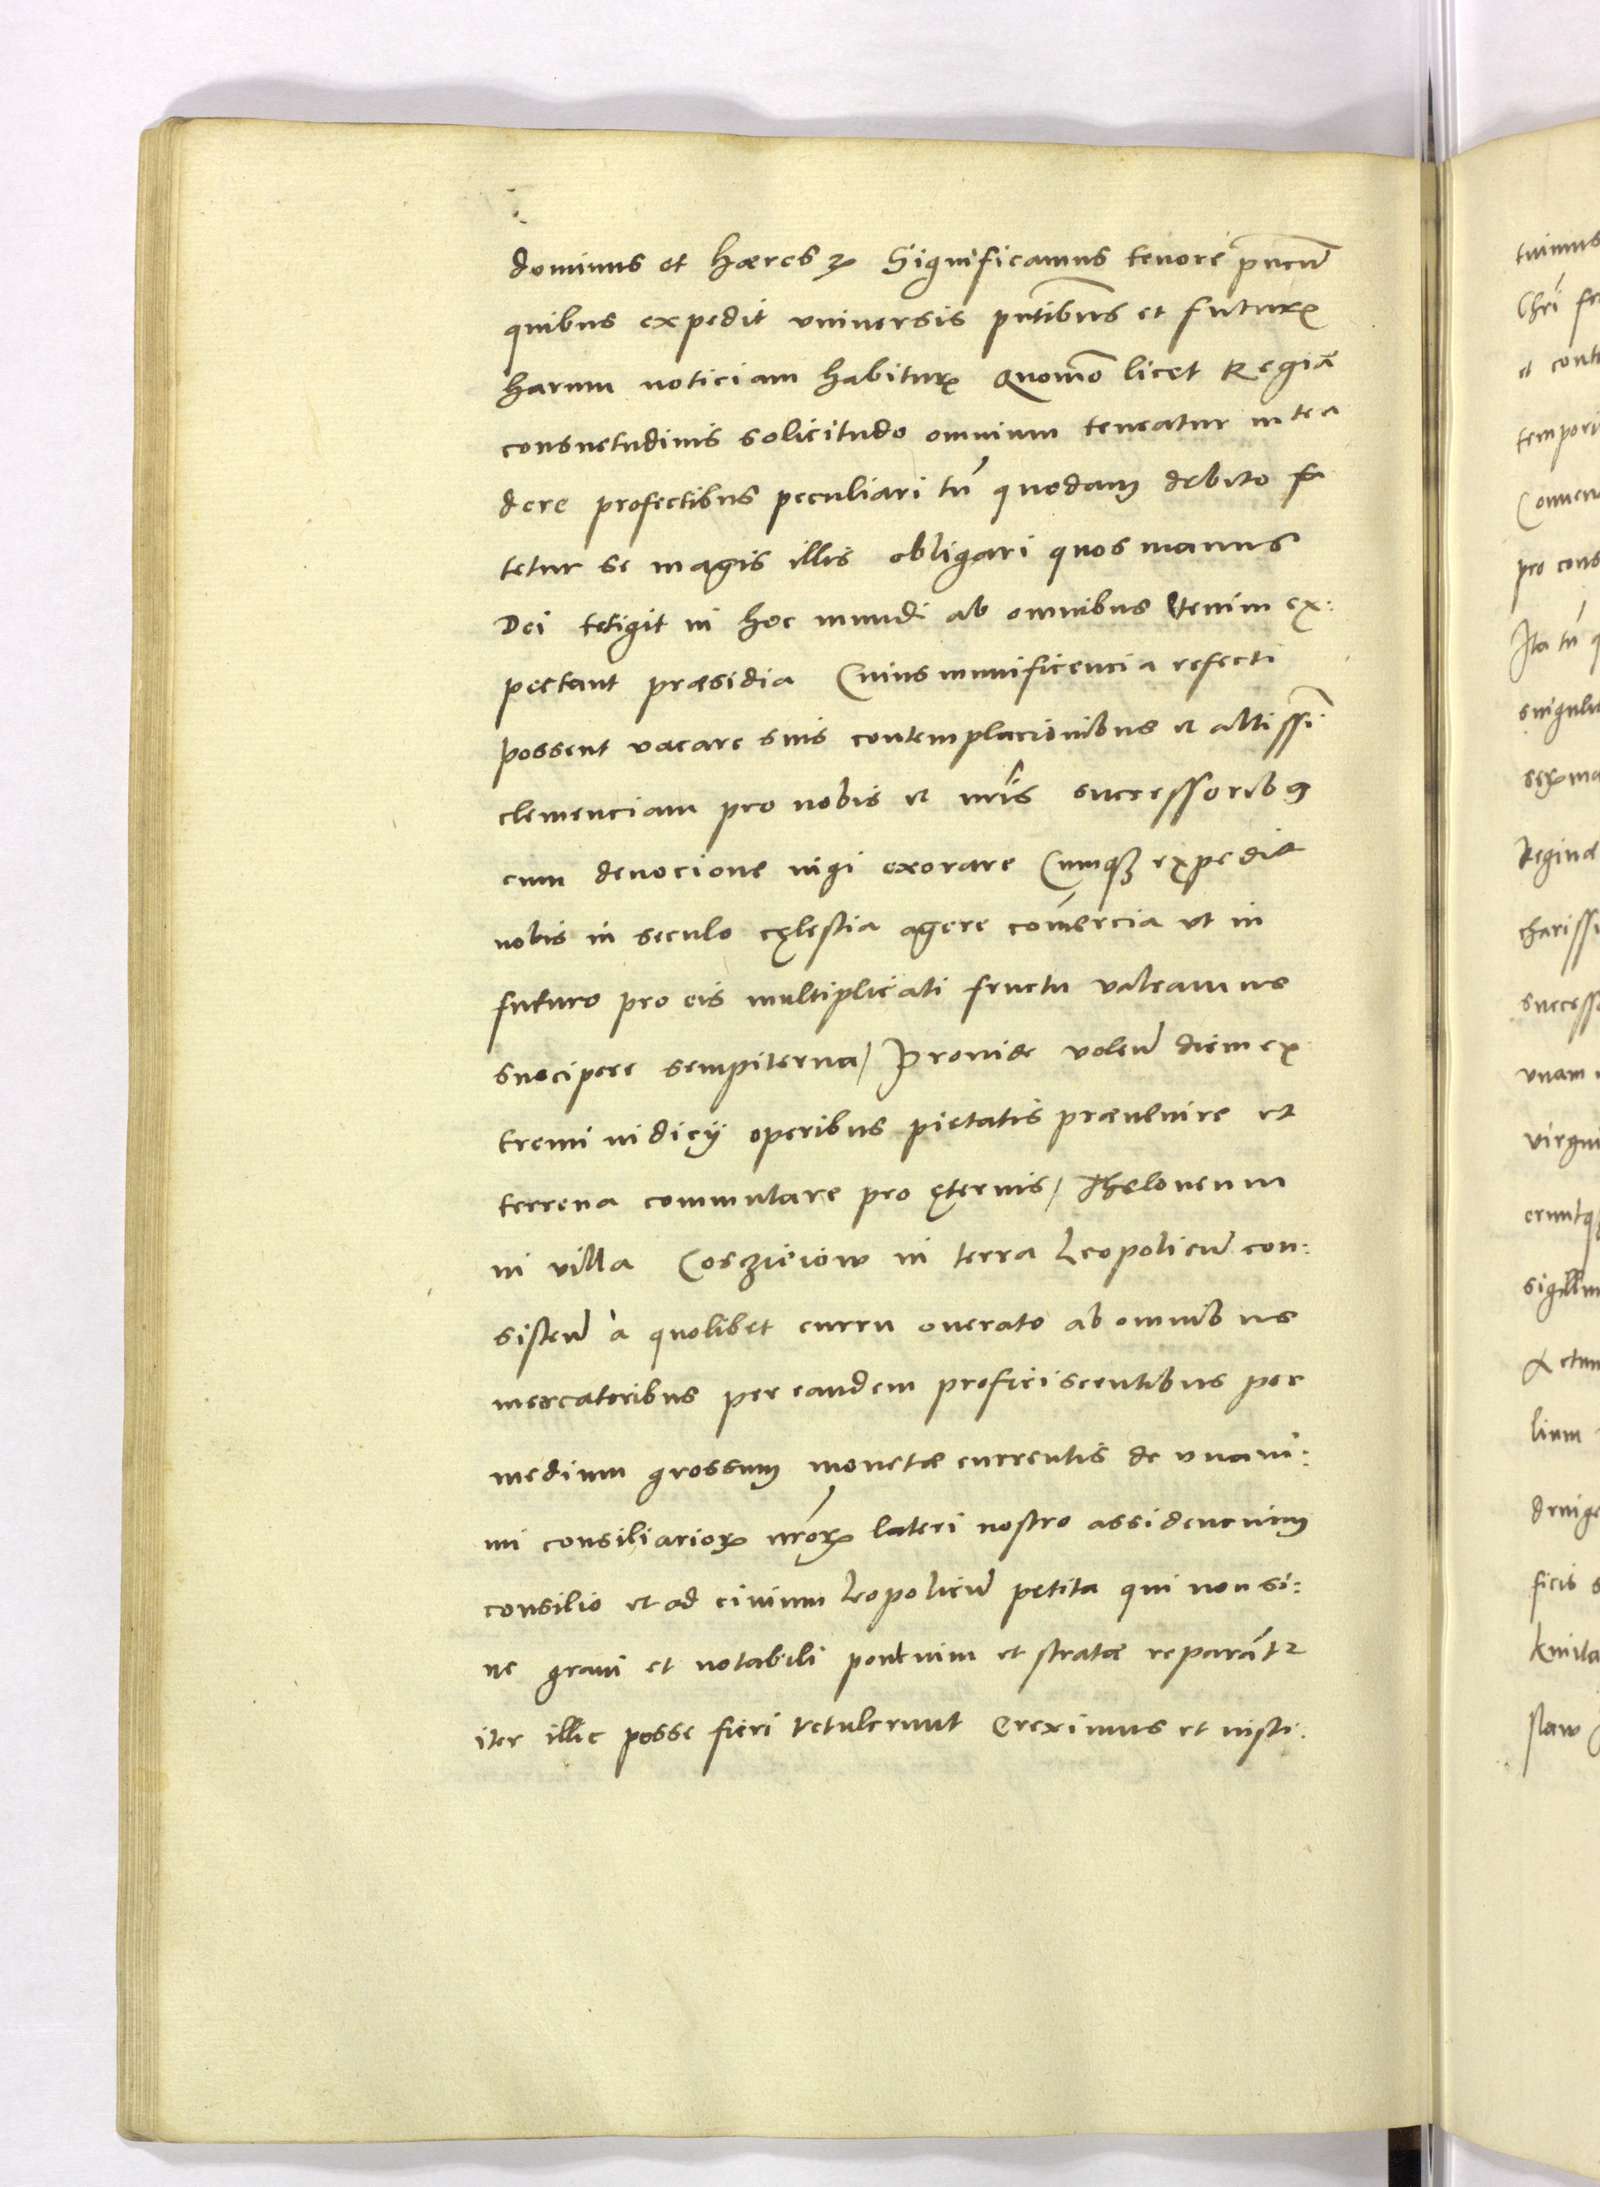 dominus et Hæres ꝛ Significamus tenore pñciũ
quibus expedit vniuersis pñtibus et futurꝝ
harum noticiam habiturꝝ Quomõ licet Regiã
consuetudinis solicitudo omnium teneatur inten
dere profectibus peculiari tñ quodam debito fa
tetur se magis illis obligari quos manus
Dei tetigit in hoc mundi ab omnibus etenim ex:
pectant præsidia Cuius munificencia refecti
possent vacare suis contemplacionibus et altissi:
clemenciam pro nobis et nr̃is successoribꝰ
cum deuocione iugi exorare Cumqꝫ expedit
nobis in seculo cęlestia agere com̃ercia vt in
futuro pro eis multiplicati fructu valeamus
suscipere sempiterna / Proinde volen̄ diem ex
tremi iudicij operibus pietatis præuenire et
terrena commutare pro ęternis / Theloneum
in villa Coszieiow in terra Leopolien̄ con:
sisten̄ à quolibet curru onerato ab omnibus
mercatoribus per eandem proficiscentibus per
medium grossum monetæ currentis de vnani:
mi consiliarioꝝ nr̃orꝝ lateri nostro assidencium
consilio et ad ciuium Leopolien̄ petita qui non si:
ne graui et notabili poncium et stratæ reparãt
iter illic posse fieri retulerunt Ereximus et insti:
tuimus
Chr̃i
et cont
tempori
Conuen
pro cons
Ita tñ q
singul
Reginæ
charissi
success
vnam
virgin
eruntqꝫ
sigillu
Actum
lium
ficis s
slaw